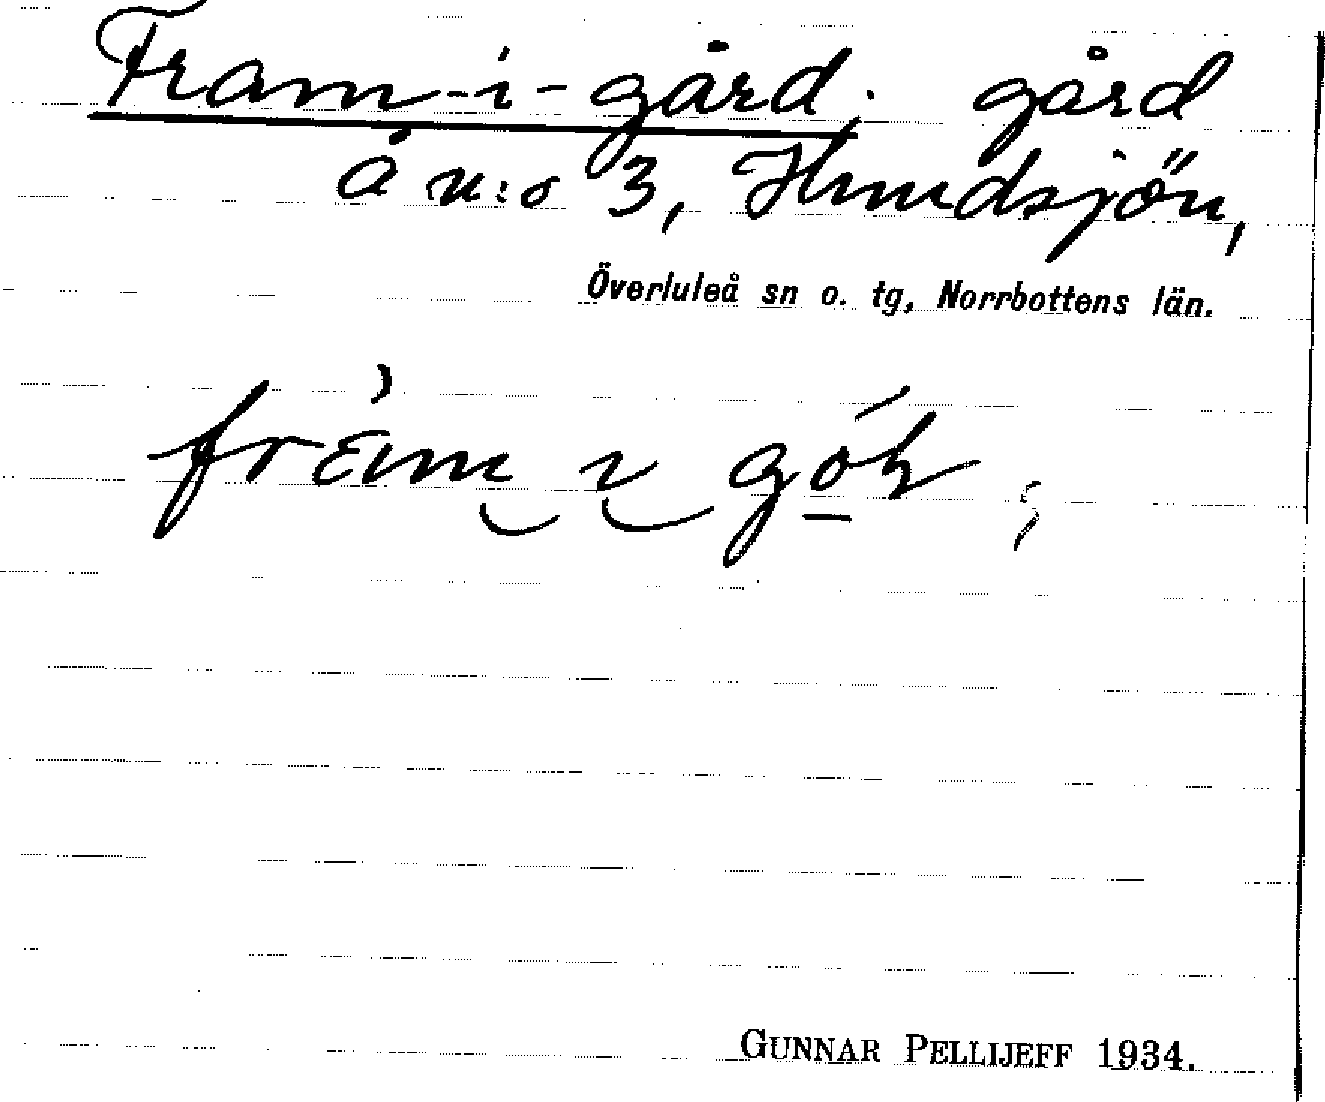 Fram-i-gård. gård
å n:o 3, Hundsjön,
Överluleå sn o. tg, Norrbottens län.
GUNNAR PELLIJEFF 1934.